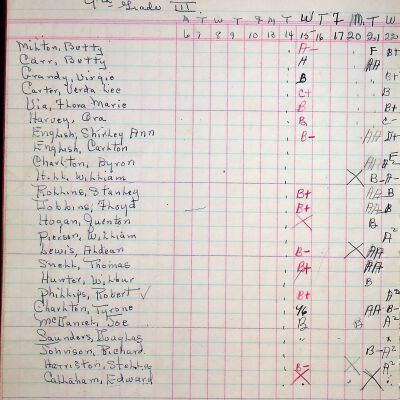 Grade III
M T W T F M T W T F M T W
6 7 8 9 10 13 14 15 16 17 20 21 22
Milton, Betty A- F B+
Carr, Betty A AA
Grandy, Virgie B B
Carter, Verda Lee C+ B
Via, Flora Marie B B
Harvey, Ora B C-
English, Shirley Ann B- AA D+
English, Carlton
Charlton, Byron AA
Hill, William X B- A-
Robbins, Stanley B+ AA B
Robbins, Floyd B+ AA B
Hogan, Quenton X B
Pierson, William A²
Lewis, Ahdean B- X AA
Snell, Thomas B+ AA
Hunter, Wilbur B
Phillips, Robert ✓ B+ A²
Charlton, Tyrone AA B-
McDaniel, Joe B A²
Saunders, Douglas
Johnson, Richard B- A²
Hairston, B- X A²
Callaham, Edward X X